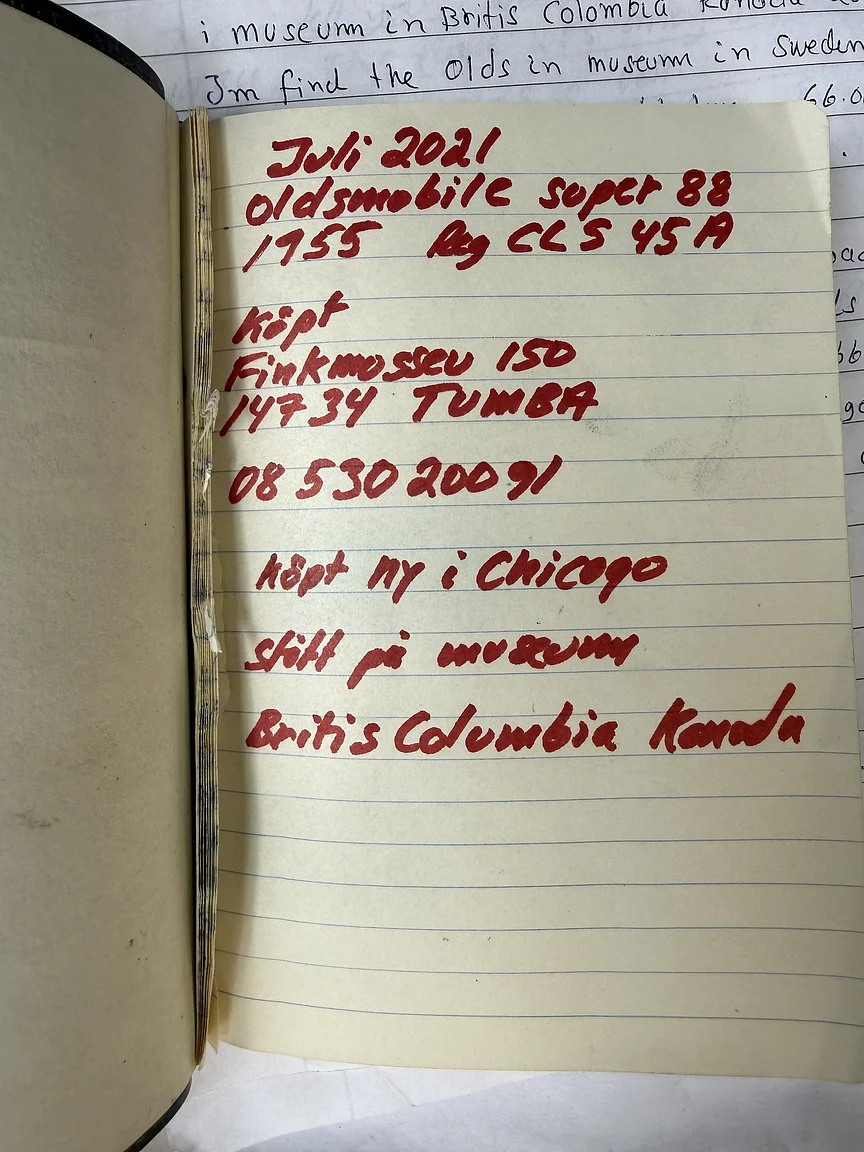 i museum in Britis Colombia Kanada
Jm find the Olds in museum in Sweden
66.0
Juli 2021
oldsmobile super 88
1955 Reg CLS 45A
Köpt
Finkmossev 150
14734 TUMBA
08 530 200 91
köpt ny i Chicago
stått på museum
Britis Columbia Kanada